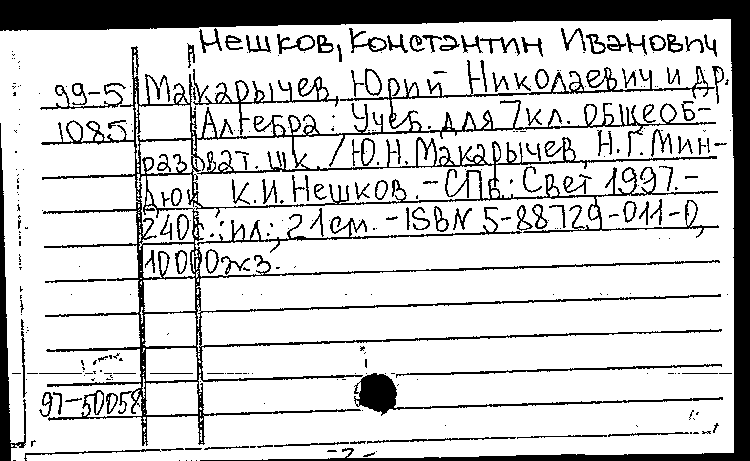 Нешков, Константин Иванович
99-5 Макарычев, Юрий Николаевич и др.
1085 Алгебра: Учеб. для 7 кл. общеоб-
разоват. шк. / Ю.Н. Макарычев, Н.Г. Мин-
дюк, К.И. Нешков. - СПб.: Свет 1997. -
240с.: ил.; 21см. - ISBN 5-88729-011-0,
10000экз.
97-50058
-2-